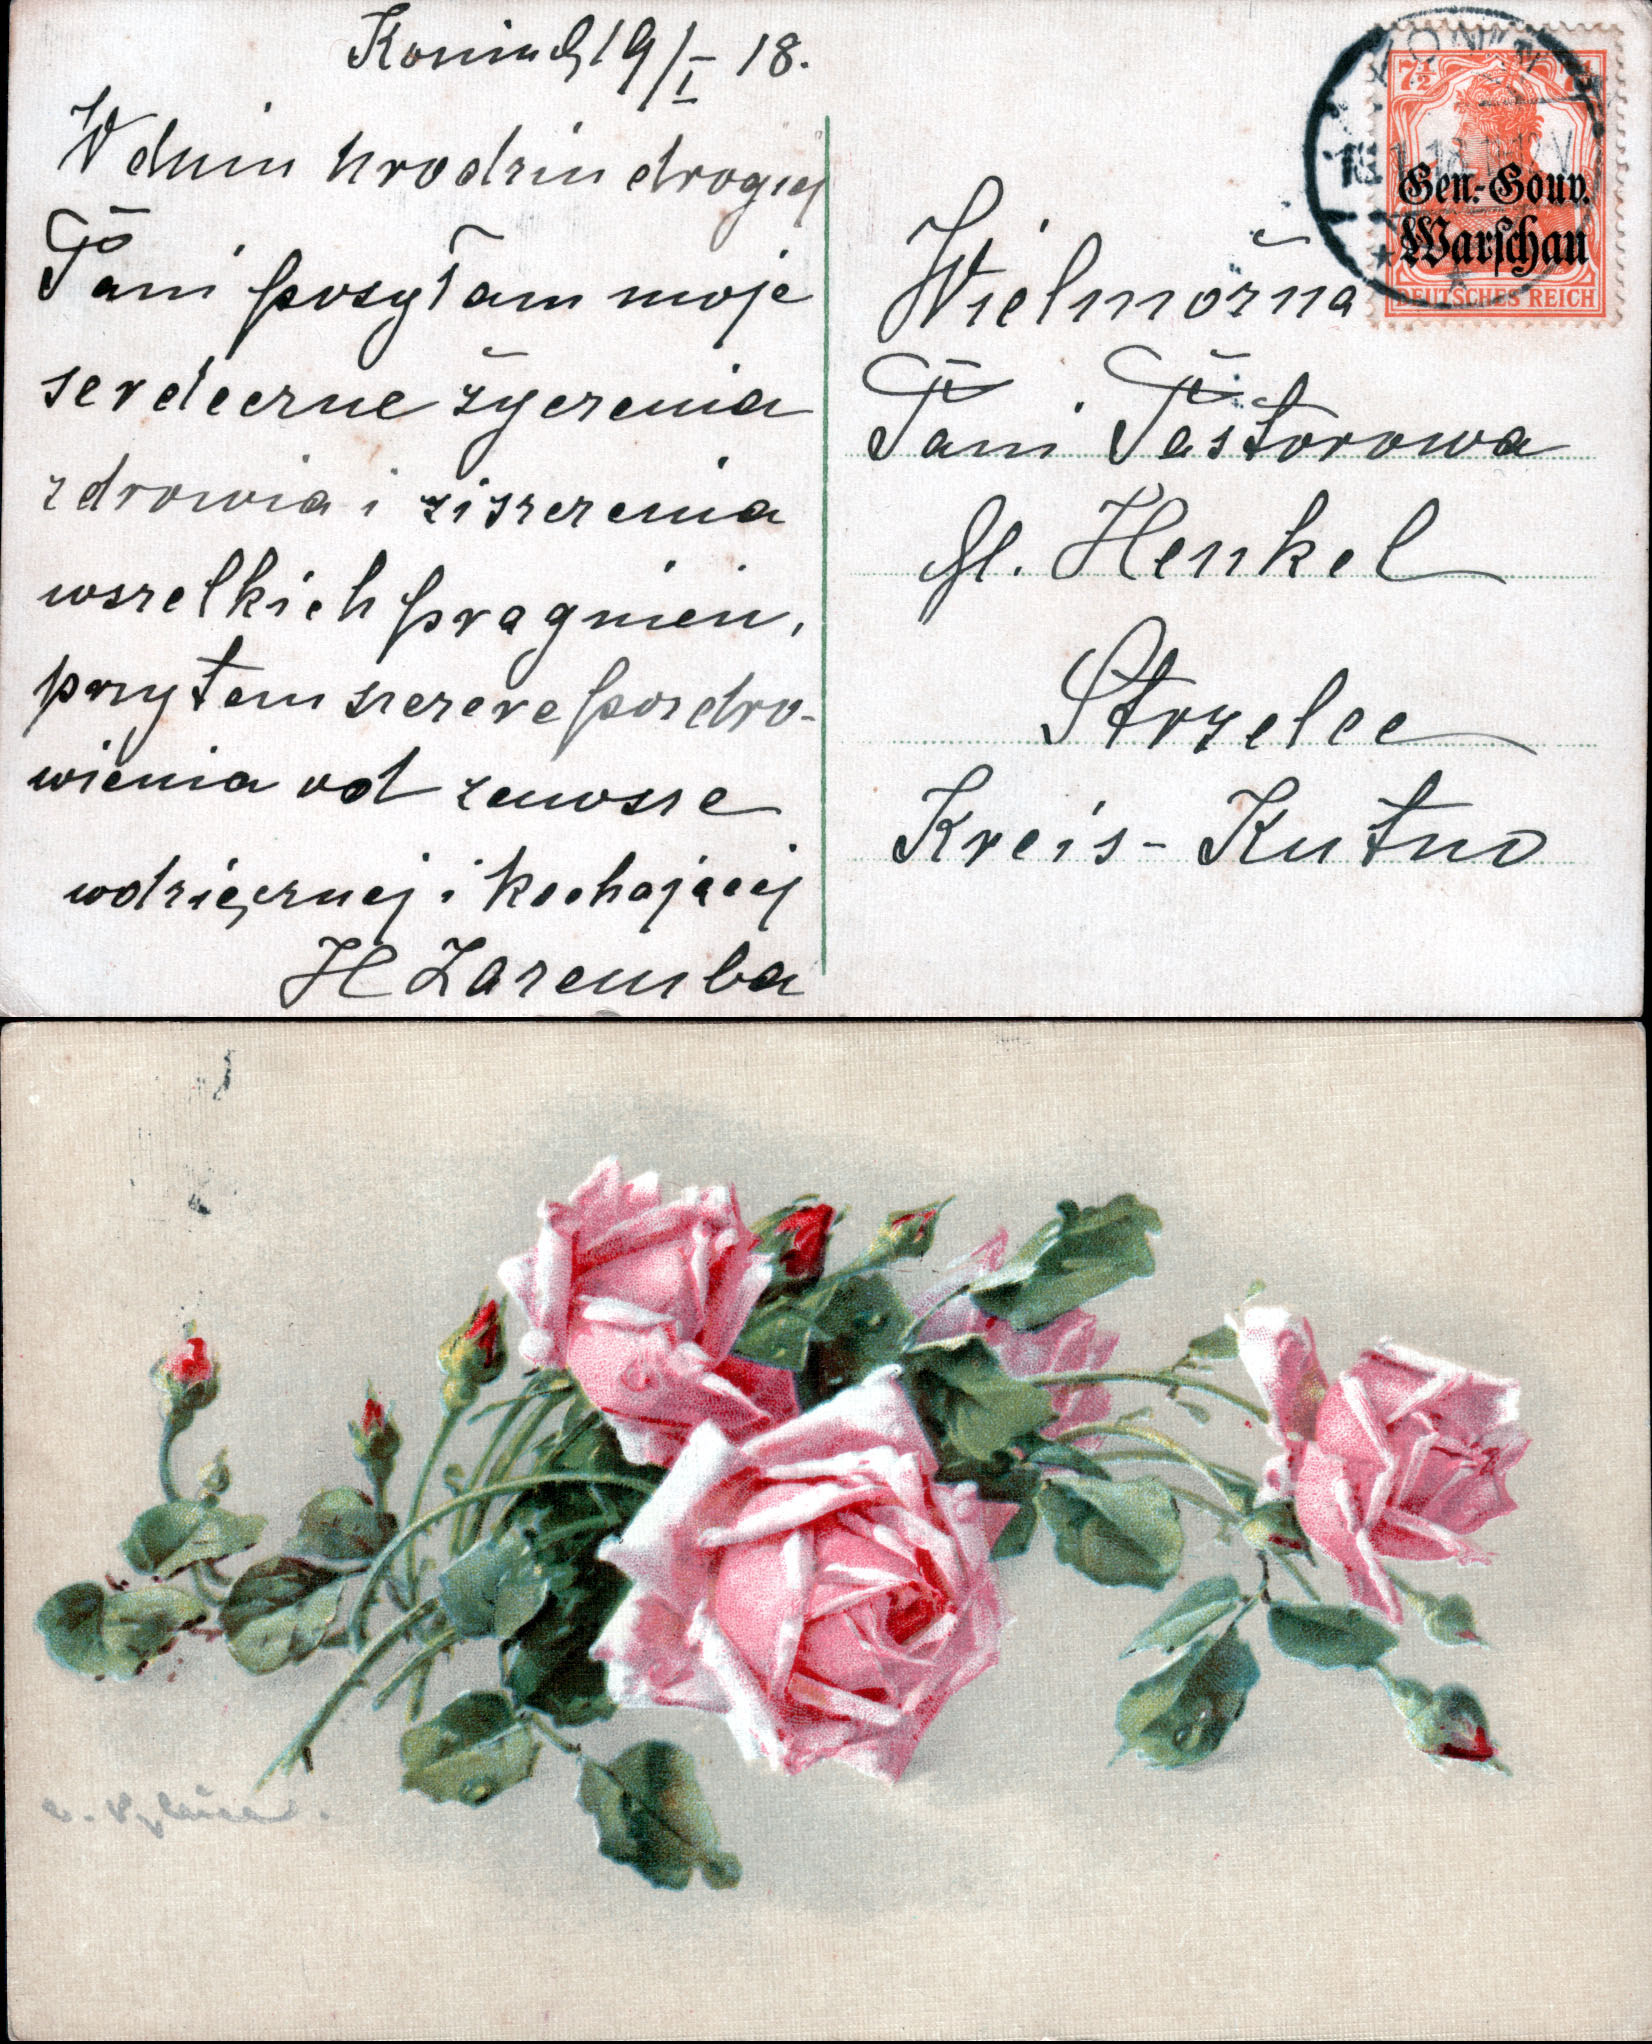 Konin d, 19/I 18.
W dniu urodzin drogiej
Pani posyłam moje
serdeczne życzenia
zdrowia i ziszczenia
wszelkich pragnień,
przytem szczere pozdro-
wienia od zawsze
wdzięcznej i kochającej
H Zaremba
7½
Gen.-Gouv.
Warschau
DEUTSCHES REICH
Wielmożna
Pani Pastorowa
H. Henkel
Strzelce
Kreis-Kutno